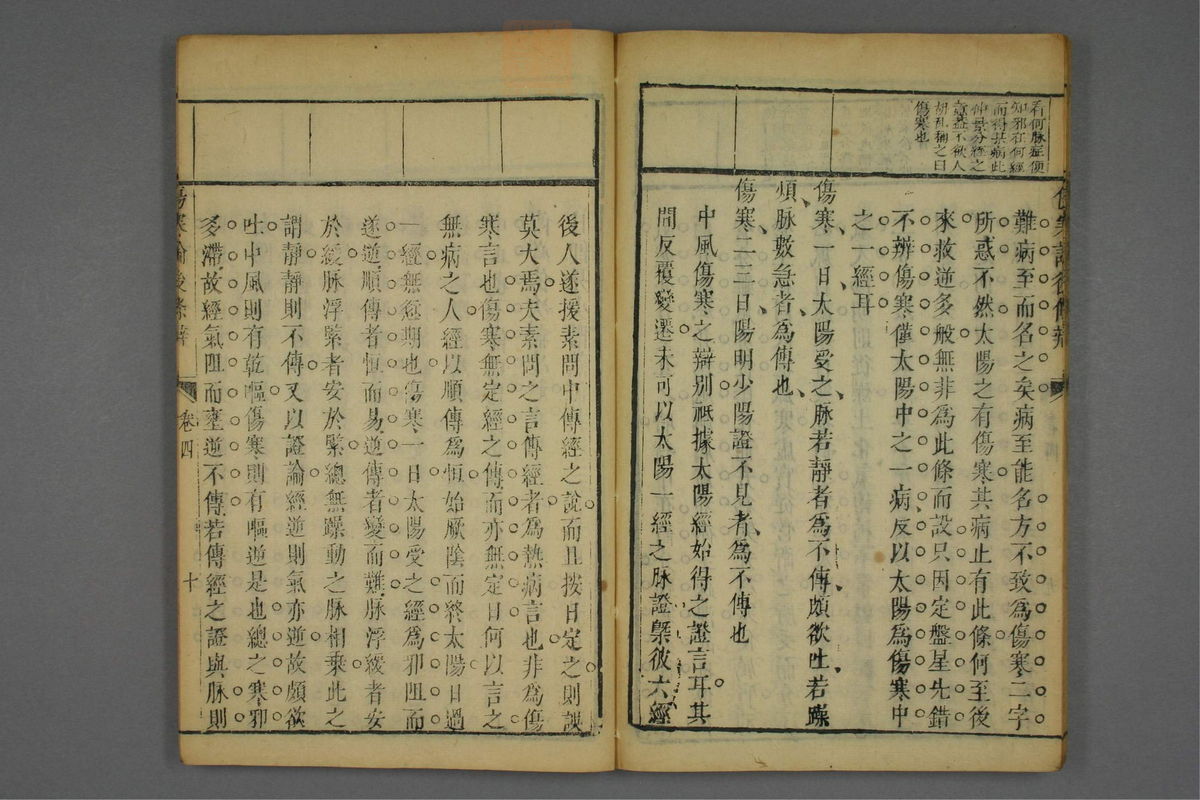 看何脉症便
知邪在何經
而得其病此
仲景分經之
意葢不欲人
胡乱稱之曰
傷寒也
難病至而名之矣病至能名方不致為傷寒二字
所惑不然太陽之有傷寒其病止有此條何至後
來救逆多般無非為此條而設只因定盤星先錯
不辨傷寒僅太陽中之一病反以太陽為傷寒中
之一大經耳
傷寒一日太陽受之脉若靜者為不傳頗欲吐若躁
煩脉數急者為傳也
傷寒二三日陽明少陽證不見者為不傳也
中風傷寒之辯别祇據太陽經始得之證言耳其
間反覆變遷未可以太陽一經之脉證槩彼六經
後人遂援素問中傳經之說而且按日定之則誤
莫大焉夫素問之言傳經者為熱病言也非為傷
寒言也傷寒無定經之傳而亦無定日何以言之
無病之人經以順傳為恒始厥陰而終太陽日過
一經無愆期也傷寒一日太陽受之經為邪阻而
遂逆順傳者恒而易逆傳者變而難脉浮緩者安
於緩脉浮緊者安於緊總無躁動之脉相乗此之
謂靜靜則不傳又以證論經逆則氣亦逆故頗欲
吐中風則有乾嘔傷寒則有嘔逆是也總之寒邪
多滯故經氣阻而壅逆不傳若傳經之證與脉則
傷寒論後條辨
卷四
十